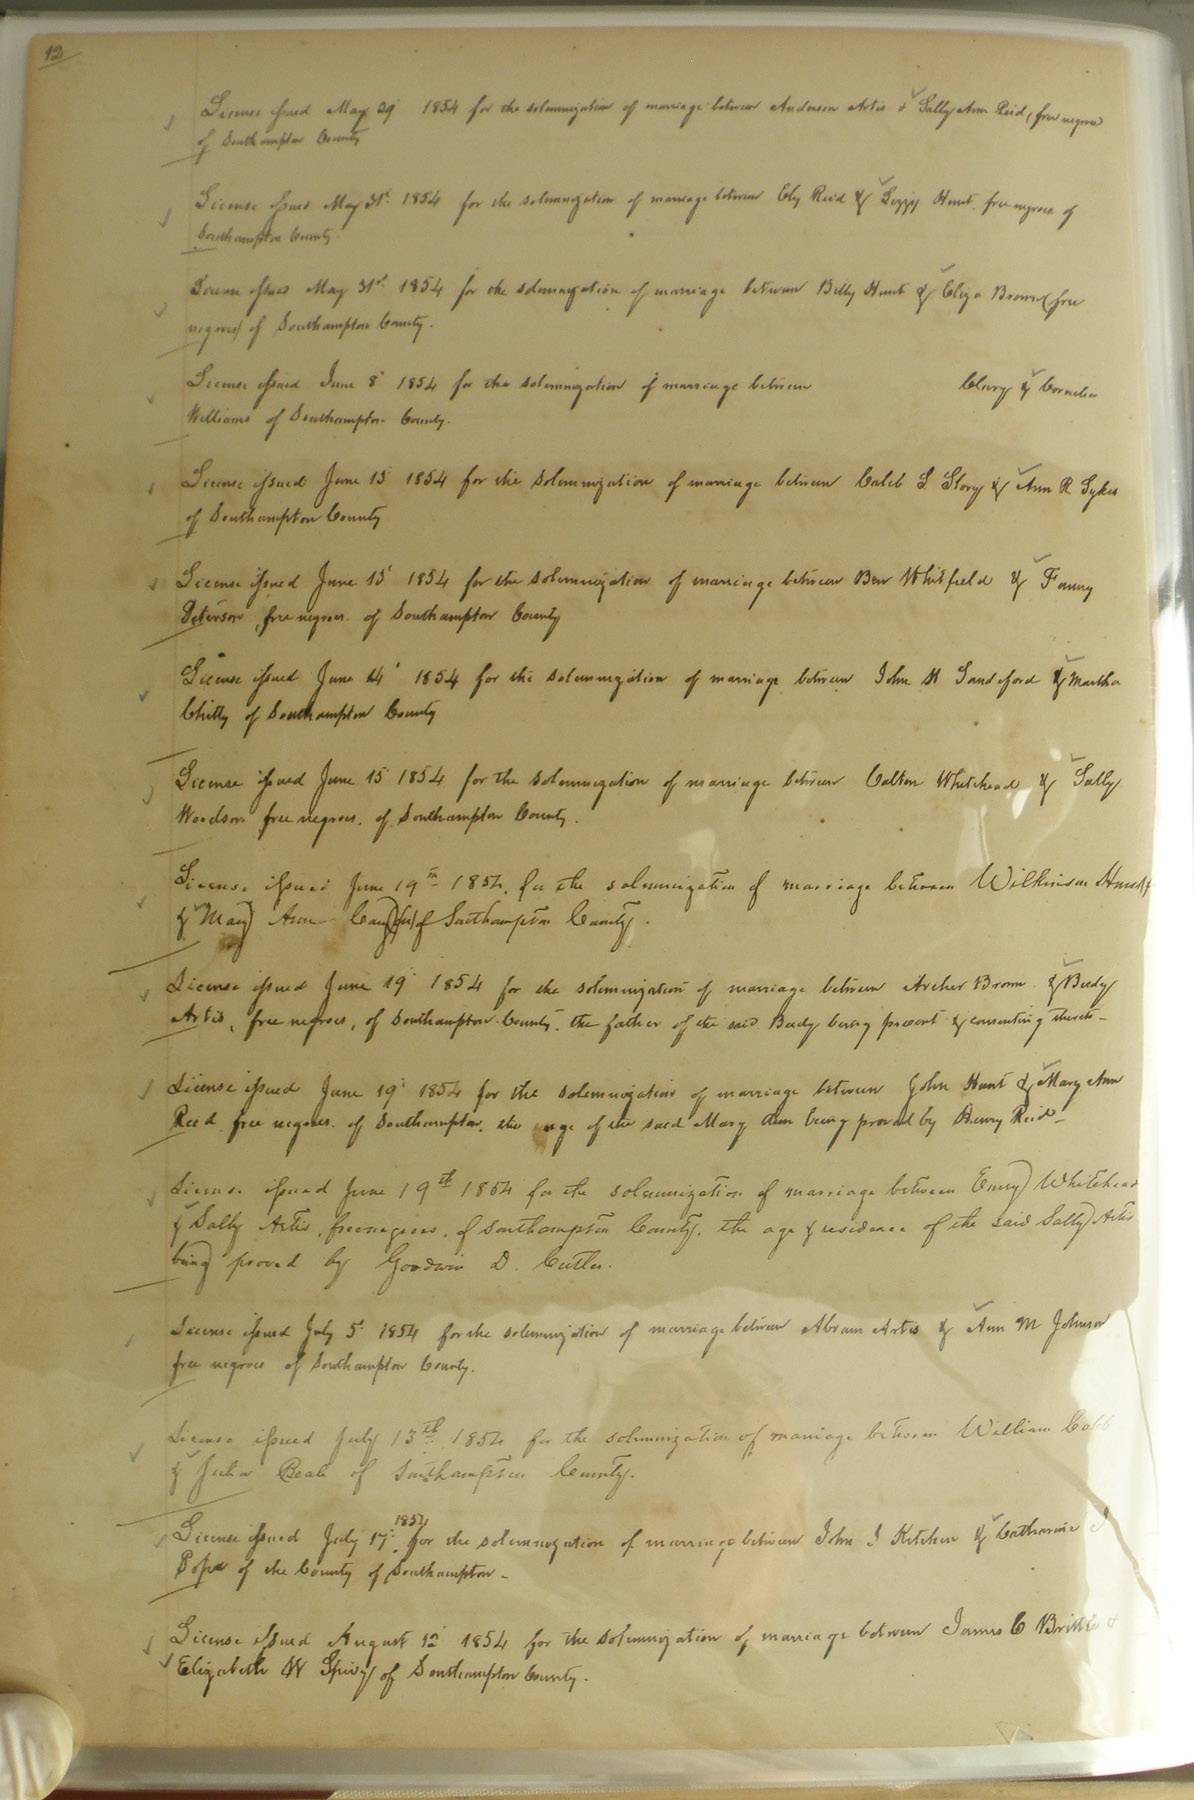 12
License issued May 29 1854 for the solemnization of marriage between Anderson Artis & Sally Ann Reid (free negroes
of Southampton County
License issued May 31st 1854 for the solemnization of marriage between Ely Reid & Lizzy Hunt, free negroes of
Southampton County
License issued May 31st 1854 for the solemnization of marriage between Billy Hunt & Eliza Brown (free
negroes) of Southampton County.
License issued June 8 1854 for the solemnization of marriage between Clary & Cornelia
Williams of Southampton County.
License issued June 13 1854 for the solemnization of marriage between Caleb L Story & Ann R Sykes
of Southampton County
License issued June 13 1854 for the solemnization of marriage between Ben Whitfield & Fanny
Peterson, free negroes of Southampton County
License issued June 14 1854 for the solemnization of marriage between John H Sandiford & Martha
Chitty of Southampton County
License issued June 15 1854 for the solemnization of marriage between Colton Whitehead & Sally
Woodson free negroes, of Southampton County.
License issued June 19th 1854, for the solemnization of marriage between Wilkinson
& Mary Ann of Southampton County.
License issued June 19 1854 for the solemnization of marriage between Archer Brown & Beedy
Artis, free negroes, of Southampton County, the father of the said Beedy being present & consenting thereto-
License issued June 19 1854 for the solemnization of marriage between John Hunt & Mary Ann
Reed free negroes of Southampton, the age of the said Mary Ann being proved by Henry Reid-
License issued June 19th 1854 for the solemnization of marriage between Emery Whitehead
& Sally Artis, free negroes, of Southampton County, the age & residence of the said Sally Artis
being proved by Goodwin D. Cutler.
License issued July 5 1854 for the solemnization of marriage between Abram Artis & Ann M Johnson
free negroes of Southampton County.
License issued July 13th 1854 for the solemnization of marriage between William Cobb
& Julia Beale of Southampton County.
License issued July 17 1854 for the solemnization of marriage between John J Kitchen & Catharine J
Pope of the County of Southampton-
License issued August 12 1854 for the solemnization of marriage between James C Brittle &
Elizabeth W Spivey of Southampton County.